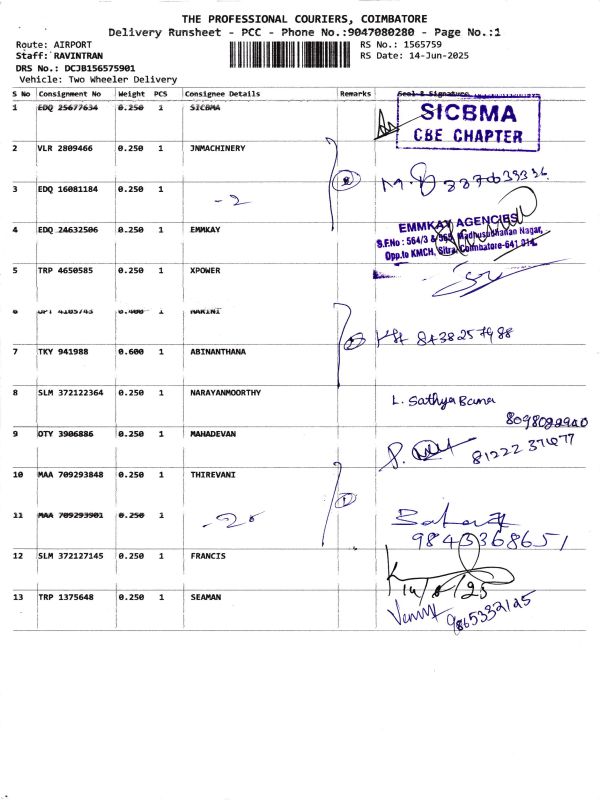 THE PROFESSIONAL COURIERS, COIMBATORE
Delivery Runsheet - PCC - Phone No.:9047080280 - Page No.:1
Route: AIRPORT
Staff: RAVINTRAN
DRS No.: DCJB156575901
Vehicle: Two Wheeler Delivery
RS No.: 1565759
RS Date: 14-Jun-2025
S No Consignment No Weight PCS Consignee Details Remarks Seal & Signature
1 EDQ 25677634 0.250 1 SICBMA
SICBMA
CBE CHAPTER
2 VLR 2809466 0.250 1 JNMACHINERY
3 EDQ 16081184 0.250 1 -2
4 EDQ 24632506 0.250 1 EMMKAY
EMMKAY AGENCIES
S.F.No : 564/3 & 565, Madhusudhanan Nagar,
Opp.to KMCH, Sitra, Coimbatore-641 014.
5 TRP 4650585 0.250 1 XPOWER
6 JPT 4105743 0.400 1 HARINI
8438257988
7 TKY 941988 0.600 1 ABINANTHANA
8 SLM 372122364 0.250 1 NARAYANMOORTHY
L. Sathya Bama
9 OTY 3906886 0.250 1 MAHADEVAN
10 MAA 709293848 0.250 1 THIREVANI
11 MAA 709293901 0.250 1
9843368651
12 SLM 372127145 0.250 1 FRANCIS
14/6/25
13 TRP 1375648 0.250 1 SEAMAN
9865332125